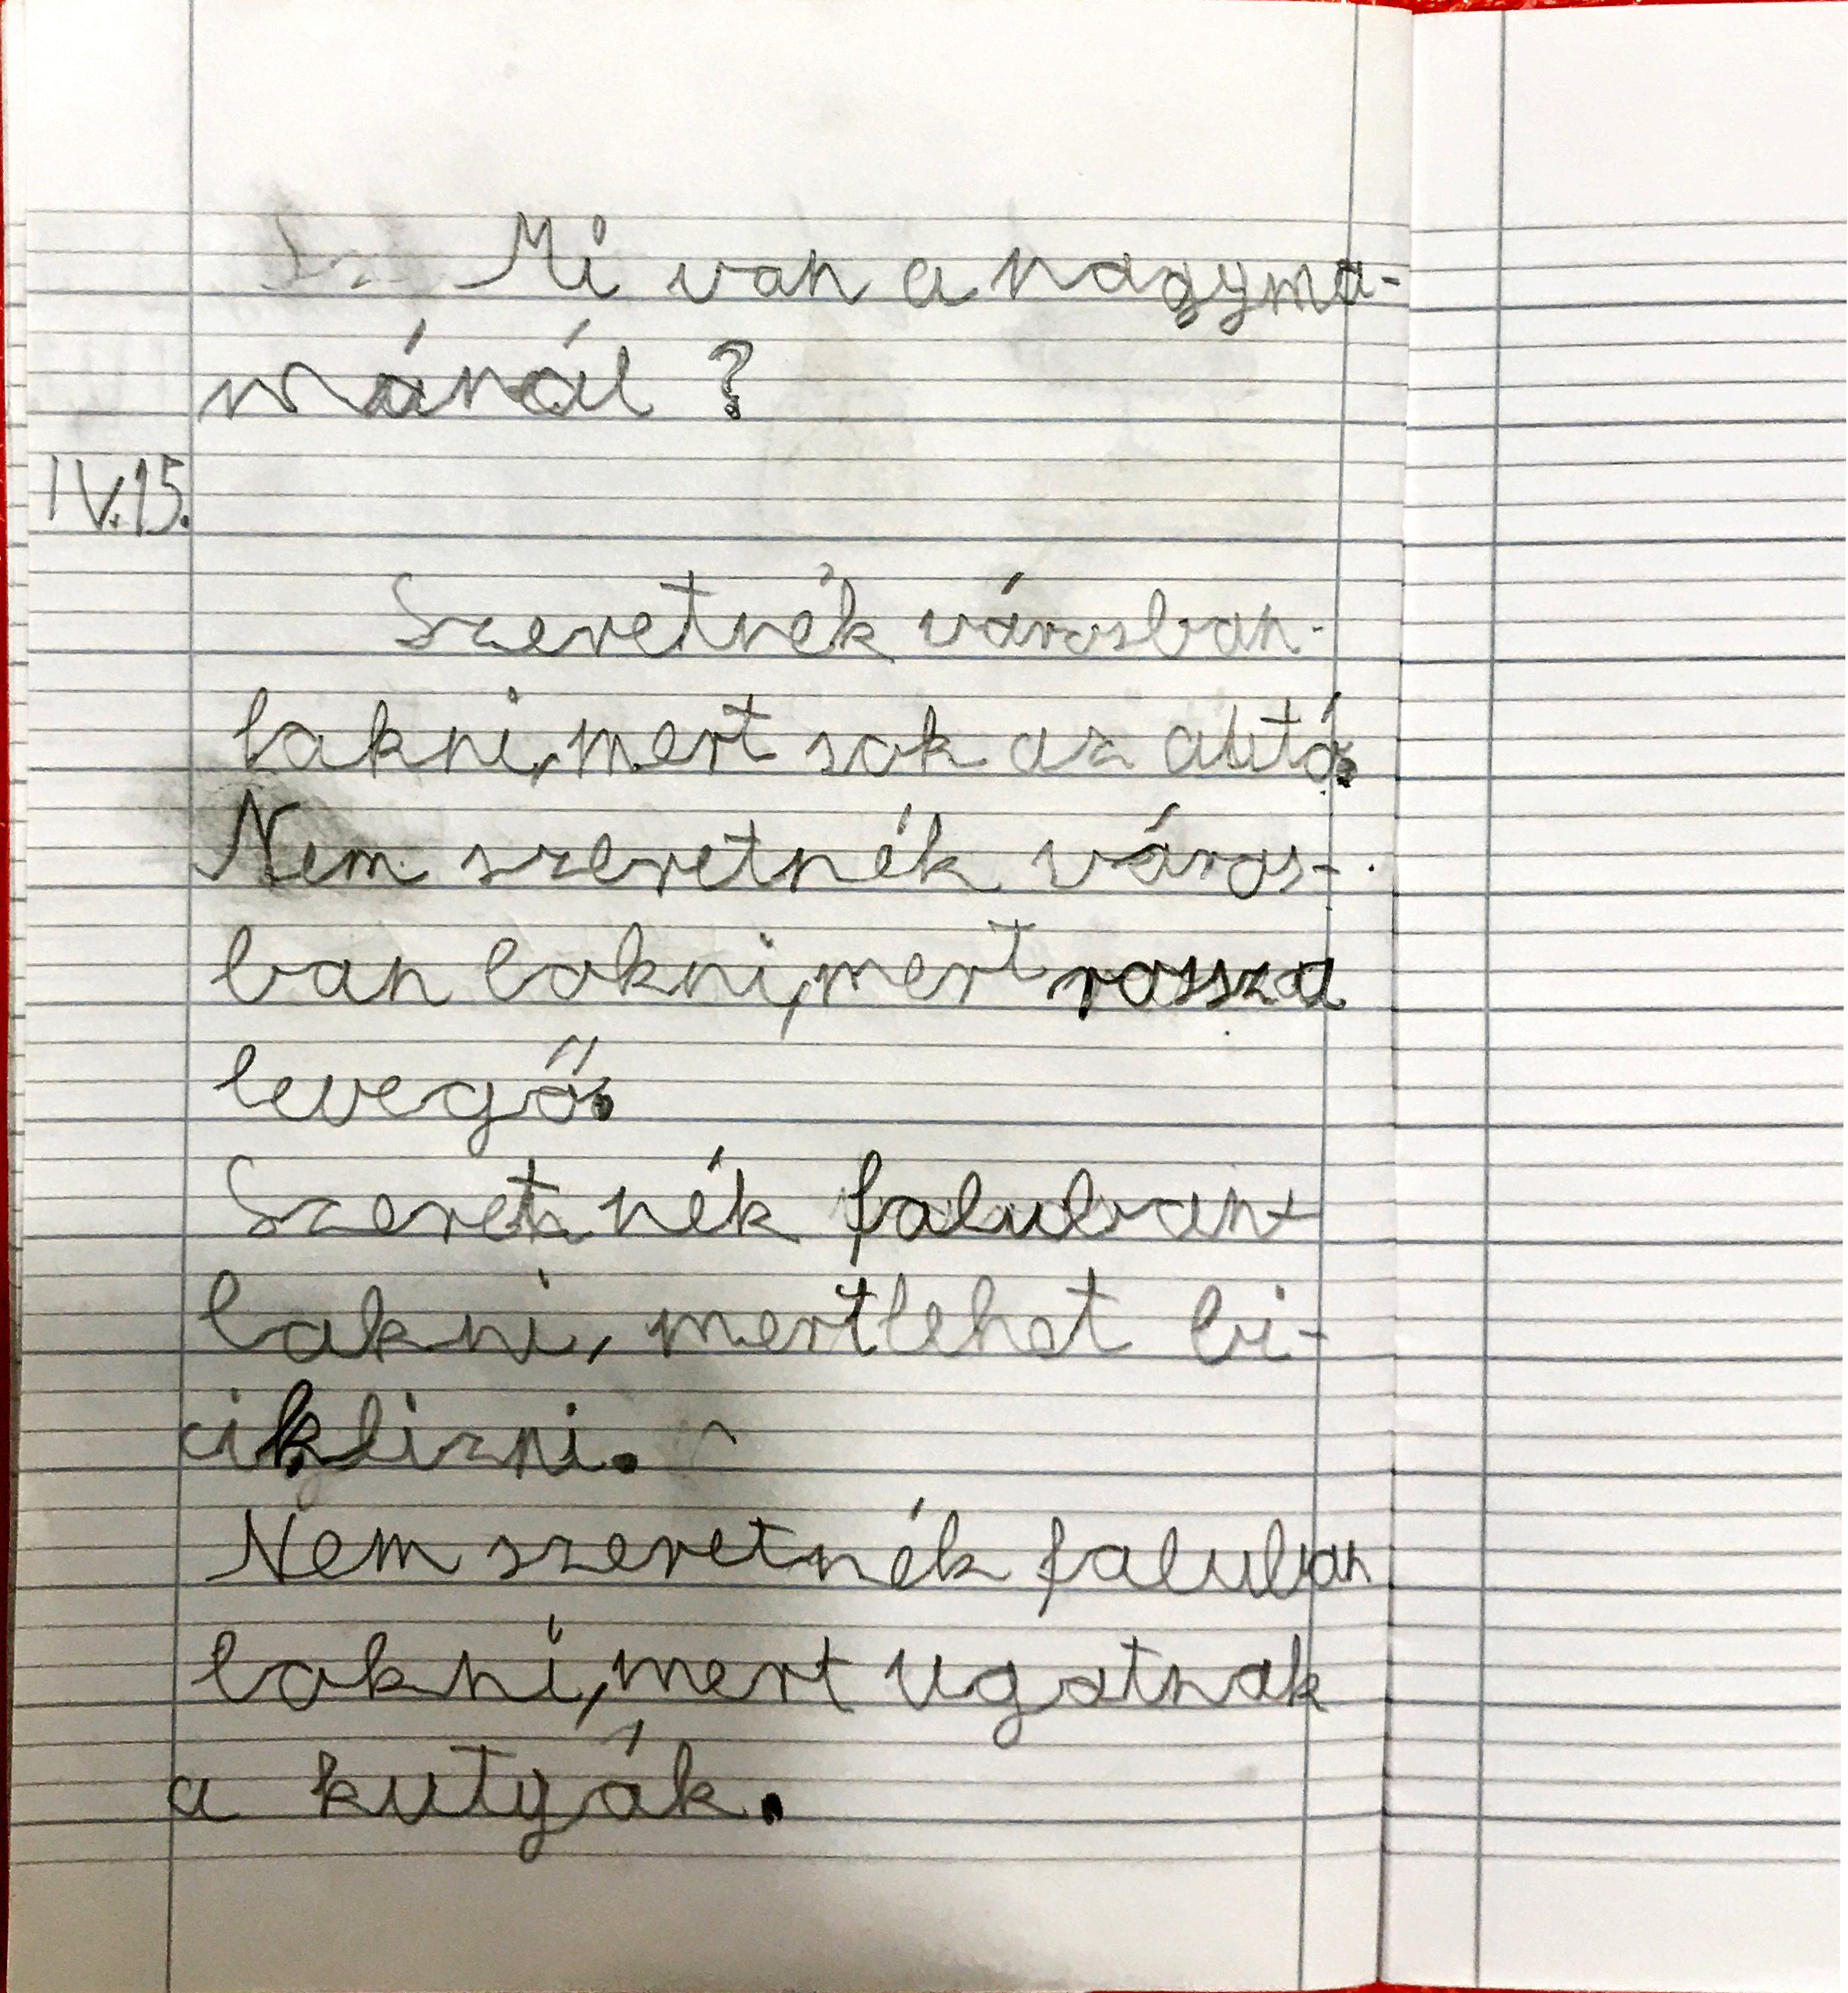 Mi van a nagyma-
mánál ?
IV.15.
Szeretnék városban-
lakni, mert sok az autó.
Nem szeretnék város-
ban lakni, mert rossz a
levegő.
Szeretnék faluban-
lakni, mert lehet bi-
ciklizni.
Nem szeretnék faluban
lakni, mert ugatnak
a kutyák.